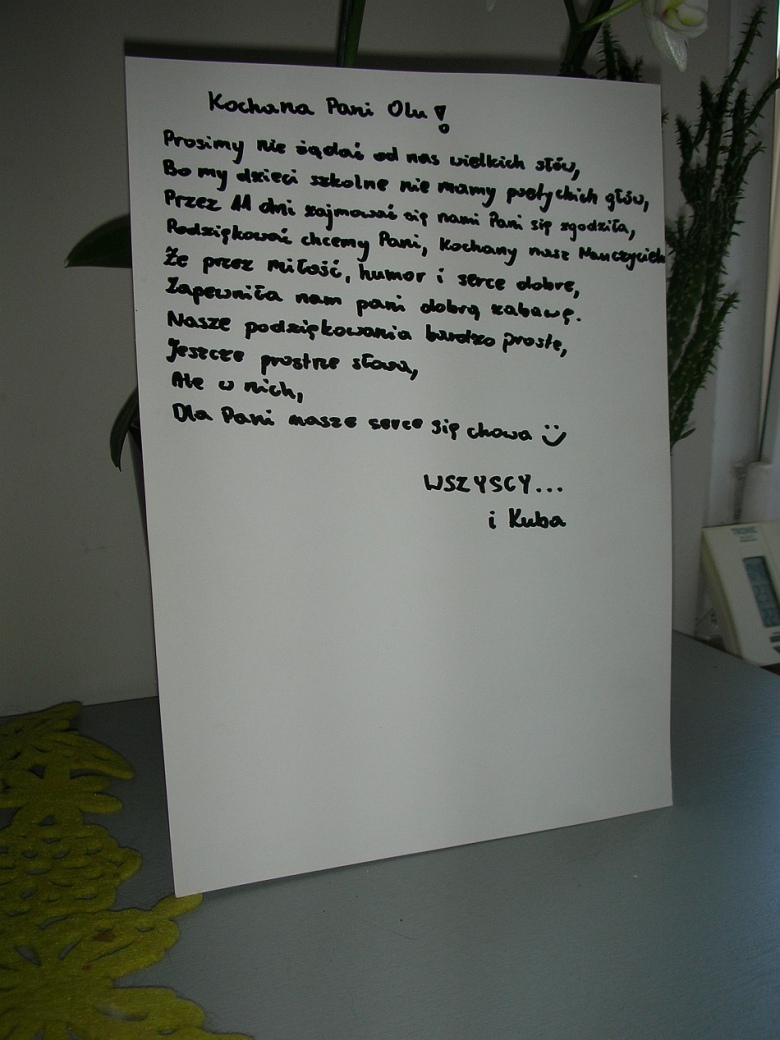 Kochana Pani Olu!
Prosimy nie żądać od nas wielkich słów,
Bo my dzieci szkolne nie mamy poetyckich głów,
Przez 11 dni zajmować się nami Pani się zgodziła,
Podziękować chcemy Pani, kochany nasz Nauczyciel
Że przez miłość, humor i serce dobre,
Zapewniła nam pani dobrą zabawę.
Nasze podziękowania bardzo proste,
Jeszcze prostrze słowa,
Ale w nich,
Dla Pani nasze serce się chowa
WSZYSCY...
i Kuba